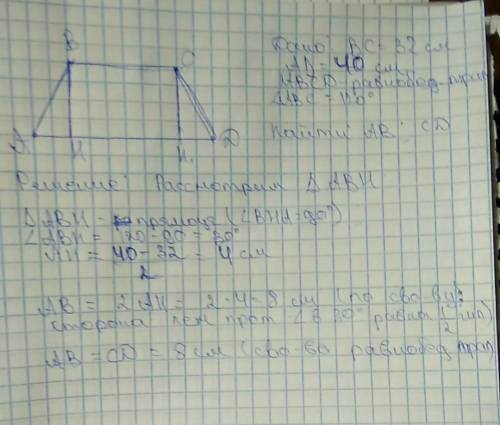 B
C
A
H
H₁
D
Дано: BC = 32 см
AD = 40 см
ABCD - равнобед. трап
∠ABC = 120°
Найти AB; CD
Решение: Рассмотрим Δ ABH
Δ ABH - прямоуг (∠BHA = 90°)
∠ABH = 120 - 90 = 30°
AH = 40 - 32 / 2 = 4 см
AB = 2AH = 2 · 4 = 8 см (по сво-ву:
сторона леж прот ∠ в 30° равна 1/2 гип)
AB = CD = 8 см (сво-во равнобед трап)